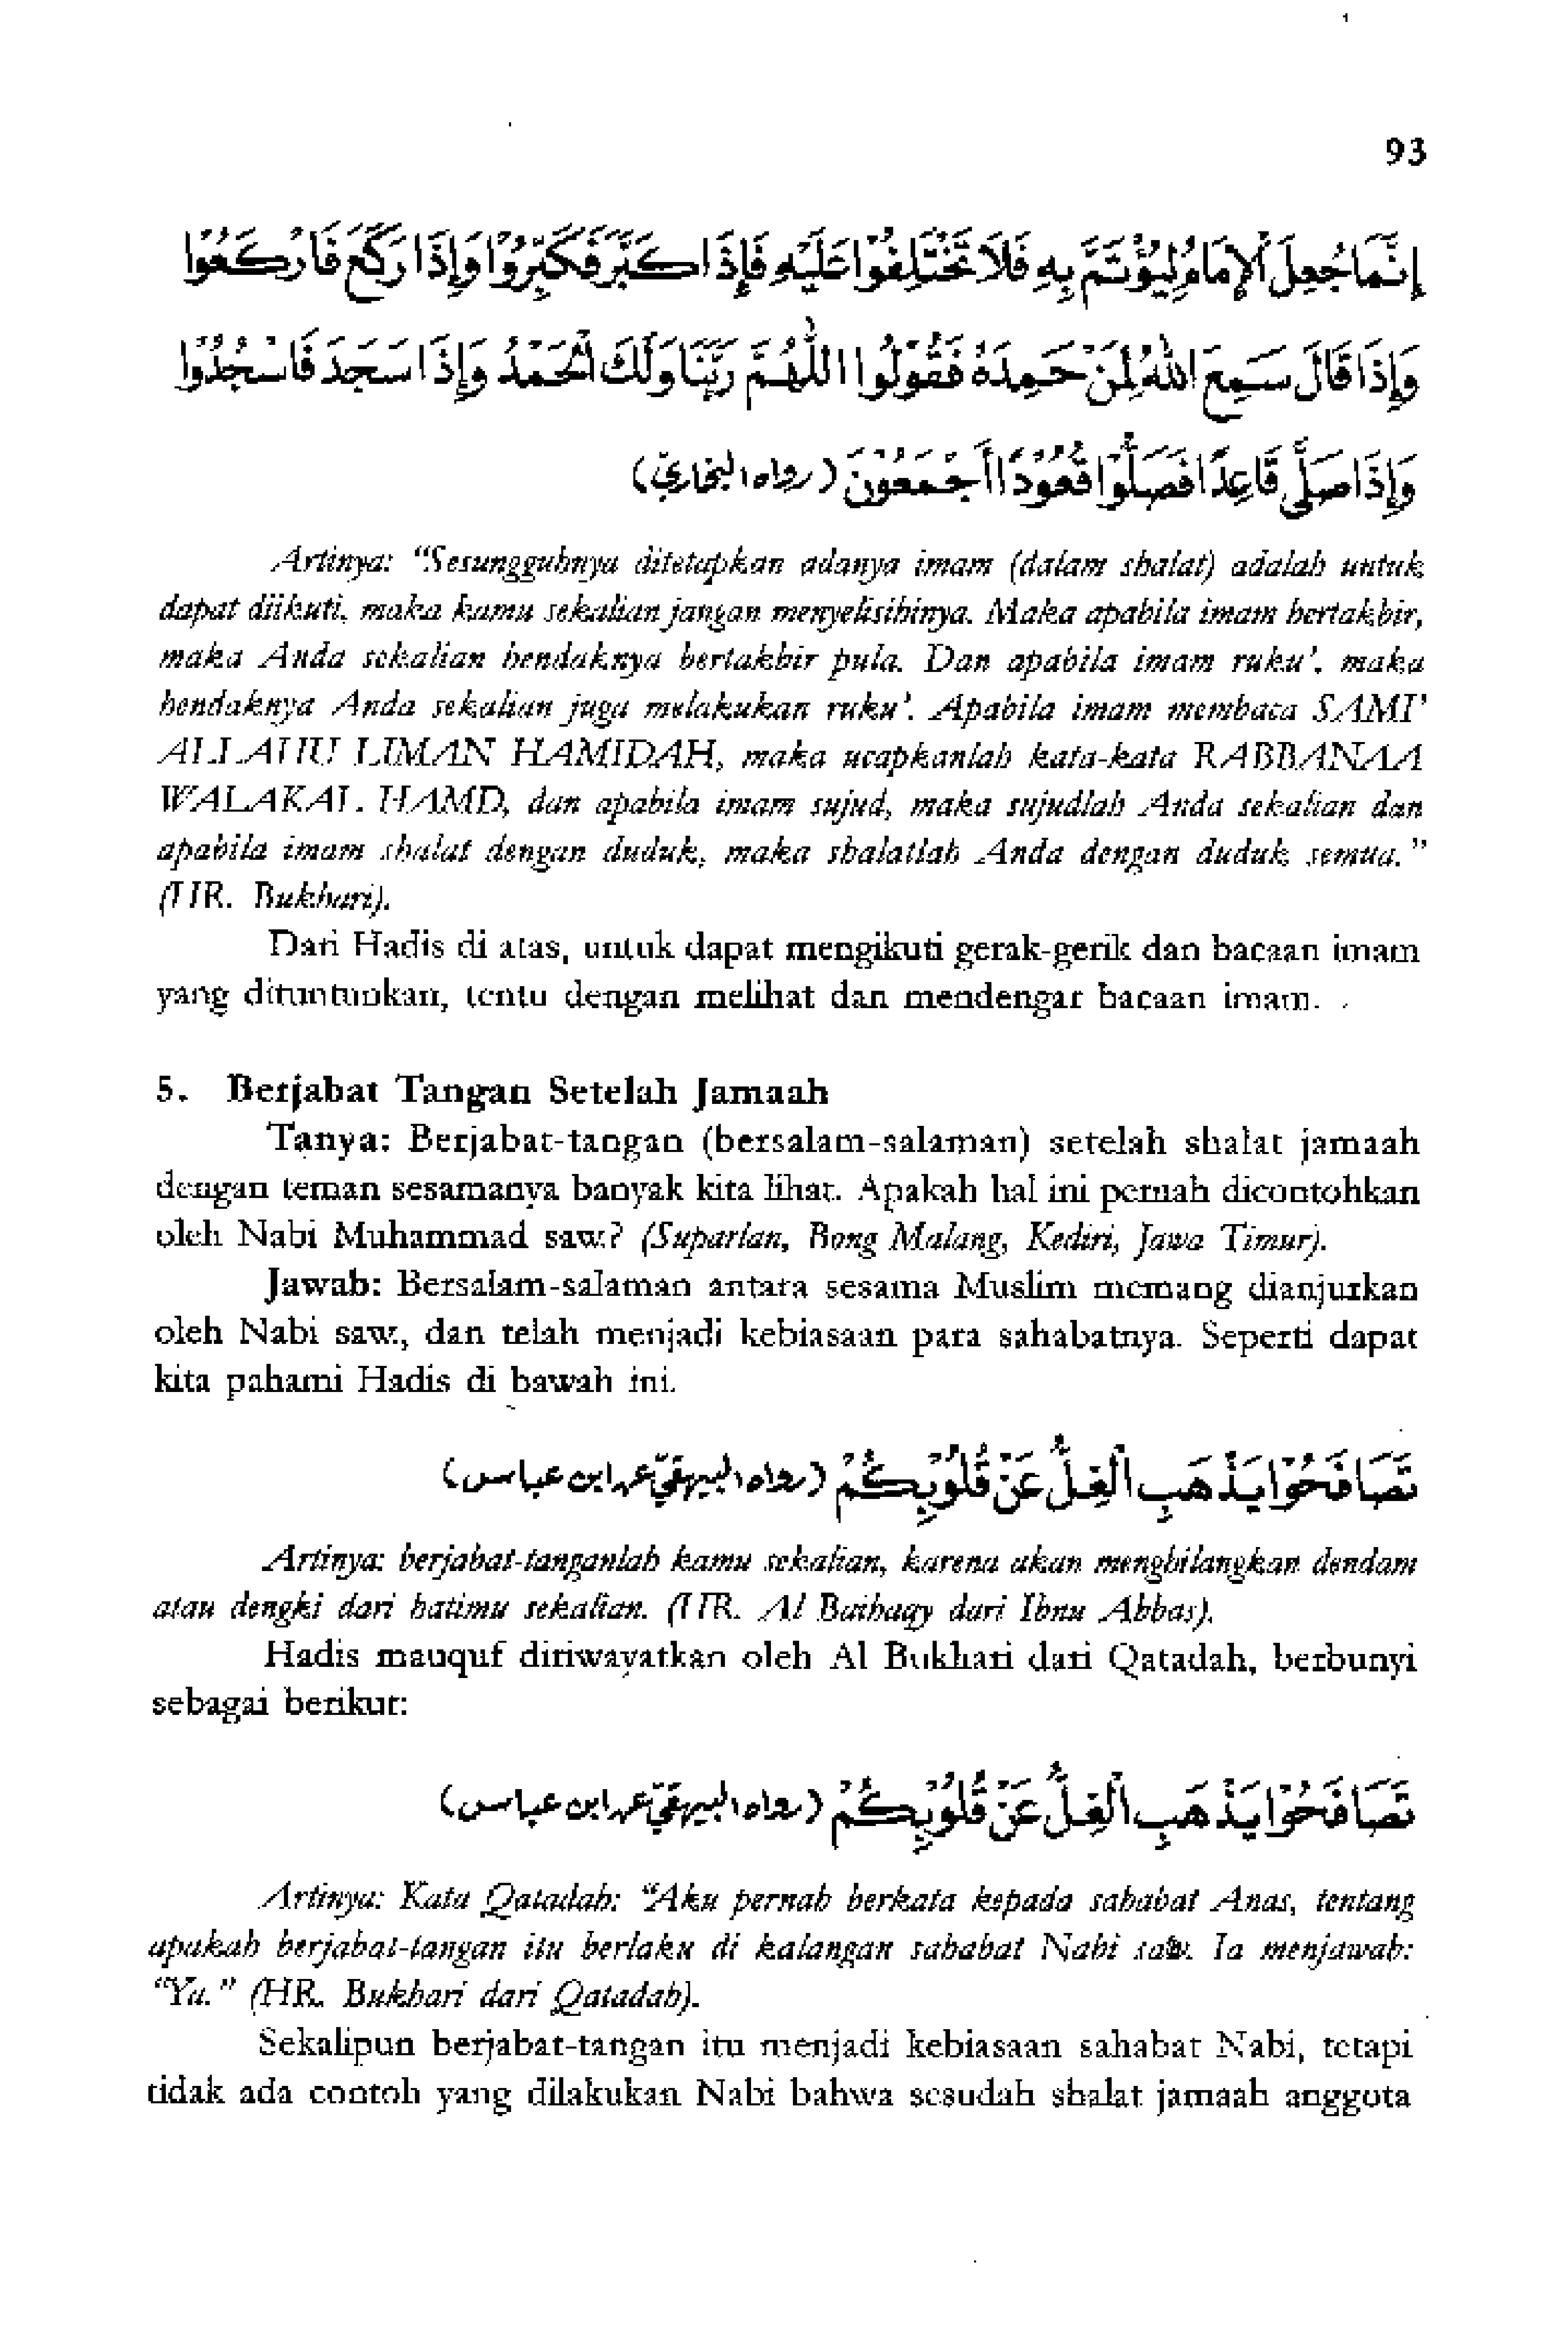 93
إِنَّمَا جُعِلَ اْلإِمَامُ لِيُؤْتَمَّ بِهِ فَلَا تَخْتَلِفُوْا عَلَيْهِ فَإِذَا كَبَّرَ فَكَبِّرُوْا وَإِذَا رَكَعَ فَارْكَعُوْا
وَإِذَا قَالَ سَمِعَ اللهُ لِمَنْ حَمِدَهُ فَقُوْلُوا اللّٰهُمَّ رَبَّنَا وَلَكَ الْحَمْدُ وَإِذَا سَجَدَ فَاسْجُدُوْا
وَإِذَا صَلَّى قَاعِدًا فَصَلُّوْا قُعُوْدًا أَجْمَعُوْنَ (رواه البخاريّ)
Artinya: "Sesungguhnya ditetapkan adanya imam (dalam shalat) adalah untuk
dapat diikuti, maka kamu sekalian jangan menyelisihinya. Maka apabila imam bertakbir,
maka Anda sekalian hendaknya bertakbir pula. Dan apabila imam ruku', maka
hendaknya Anda sekalian juga melakukan ruku'. Apabila imam membaca SAMI'
ALLAHU LIMAN HAMIDAH, maka ucapkanlah kata-kata RABBANAA
WALAKAL HAMD, dan apabila imam sujud, maka sujudlah Anda sekalian dan
apabila imam shalat dengan duduk, maka shalatlah Anda dengan duduk semua."
(HR. Bukhari).
Dari Hadis di atas, untuk dapat mengikuti gerak-gerik dan bacaan imam
yang dituntunkan, tentu dengan melihat dan mendengar bacaan imam.
5. Berjabat Tangan Setelah Jamaah
Tanya: Berjabat-tangan (bersalam-salaman) setelah shalat jamaah
dengan teman sesamanya banyak kita lihat. Apakah hal ini pernah dicontohkan
oleh Nabi Muhammad saw.? (Suparlan, Bong Malang, Kediri, Jawa Timur).
Jawab: Bersalam-salaman antara sesama Muslim memang dianjurkan
oleh Nabi saw., dan telah menjadi kebiasaan para sahabatnya. Seperti dapat
kita pahami Hadis di bawah ini.
تَصَافَحُوْا يَذْهَبِ الْغِلُّ عَنْ قُلُوْبِكُمْ (رواه البيهقيّ عن ابن عباس)
Artinya: berjabat-tanganlah kamu sekalian, karena akan menghilangkan dendam
atau dengki dari hatimu sekalian. (HR. Al Baihaqy dari Ibnu Abbas).
Hadis mauquf diriwayatkan oleh Al Bukhari dari Qatadah, berbunyi
sebagai berikut:
تَصَافَحُوْا يَذْهَبِ الْغِلُّ عَنْ قُلُوْبِكُمْ (رواه البيهقيّ عن ابن عباس)
Artinya: Kata Qatadah: "Aku pernah berkata kepada sahabat Anas, tentang
apakah berjabat-tangan itu berlaku di kalangan sahabat Nabi saw. Ia menjawab:
"Ya." (HR. Bukhari dari Qatadah).
Sekalipun berjabat-tangan itu menjadi kebiasaan sahabat Nabi, tetapi
tidak ada contoh yang dilakukan Nabi bahwa sesudah shalat jamaah anggota